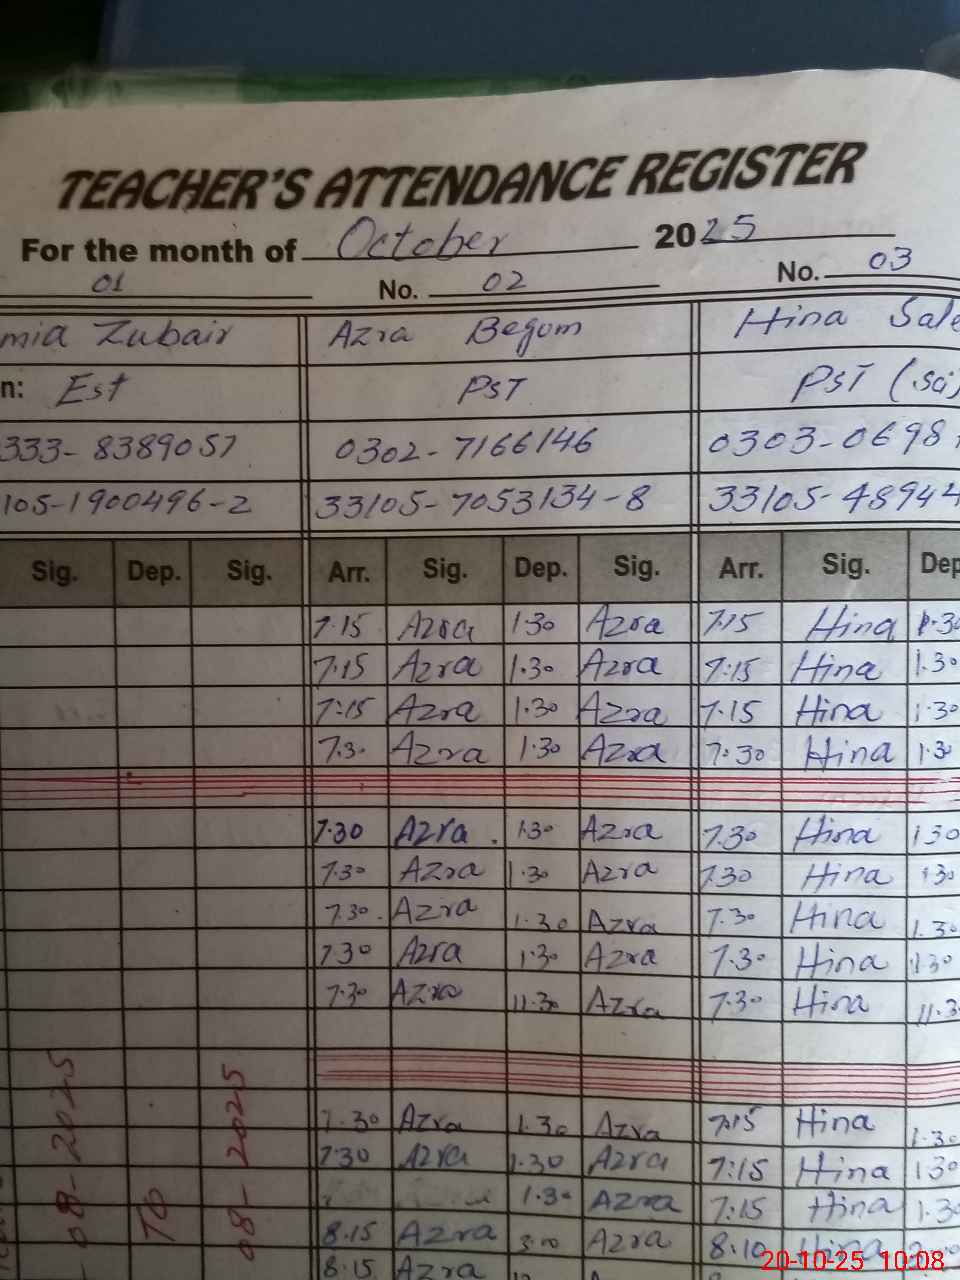 TEACHER'S ATTENDANCE REGISTER
For the month of October 2025
01 No. 02 No. 03
mia Zubair Azra Begum Hina Sale
n: Est PST PST (sci)
333-8389057 0302-7166146 0303-0698
105-1900496-2 33105-7053134-8 33105-48944
Sig. Dep. Sig. Arr. Sig. Dep. Sig. Arr. Sig. Dep
7.15 Azra 1.30 Azra 7.15 Hina 1.30
7.15 Azra 1.30 Azra 7:15 Hina 1.30
7:15 Azra 1.30 Azra 7.15 Hina 1.30
7.3. Azra 1.30 Azra 7:30 Hina 1.3
7.30 Azra . 1.30 Azra 7.30 Hina 130
7.30 Azra 1.30 Azra 7.30 Hina 1.30
7.30. Azra 1.30 Azra 7.30 Hina 1.30
7.30 Azra 1.30 Azra 7.30 Hina 1.30
7.30 Azra 11.30 Azra 7.30 Hina 11.3
7.30 Azra 1.30 Azra 7:15 Hina 1.30
7.30 Azra 1.30 Azra 7:15 Hina 1.30
1.30 Azra 7:15 Hina 1.30
8.15 Azra 3.00 Azra 8.10 Hina
8.15 Azra
08-2025
TO
08-2025
20-10-25 10:08